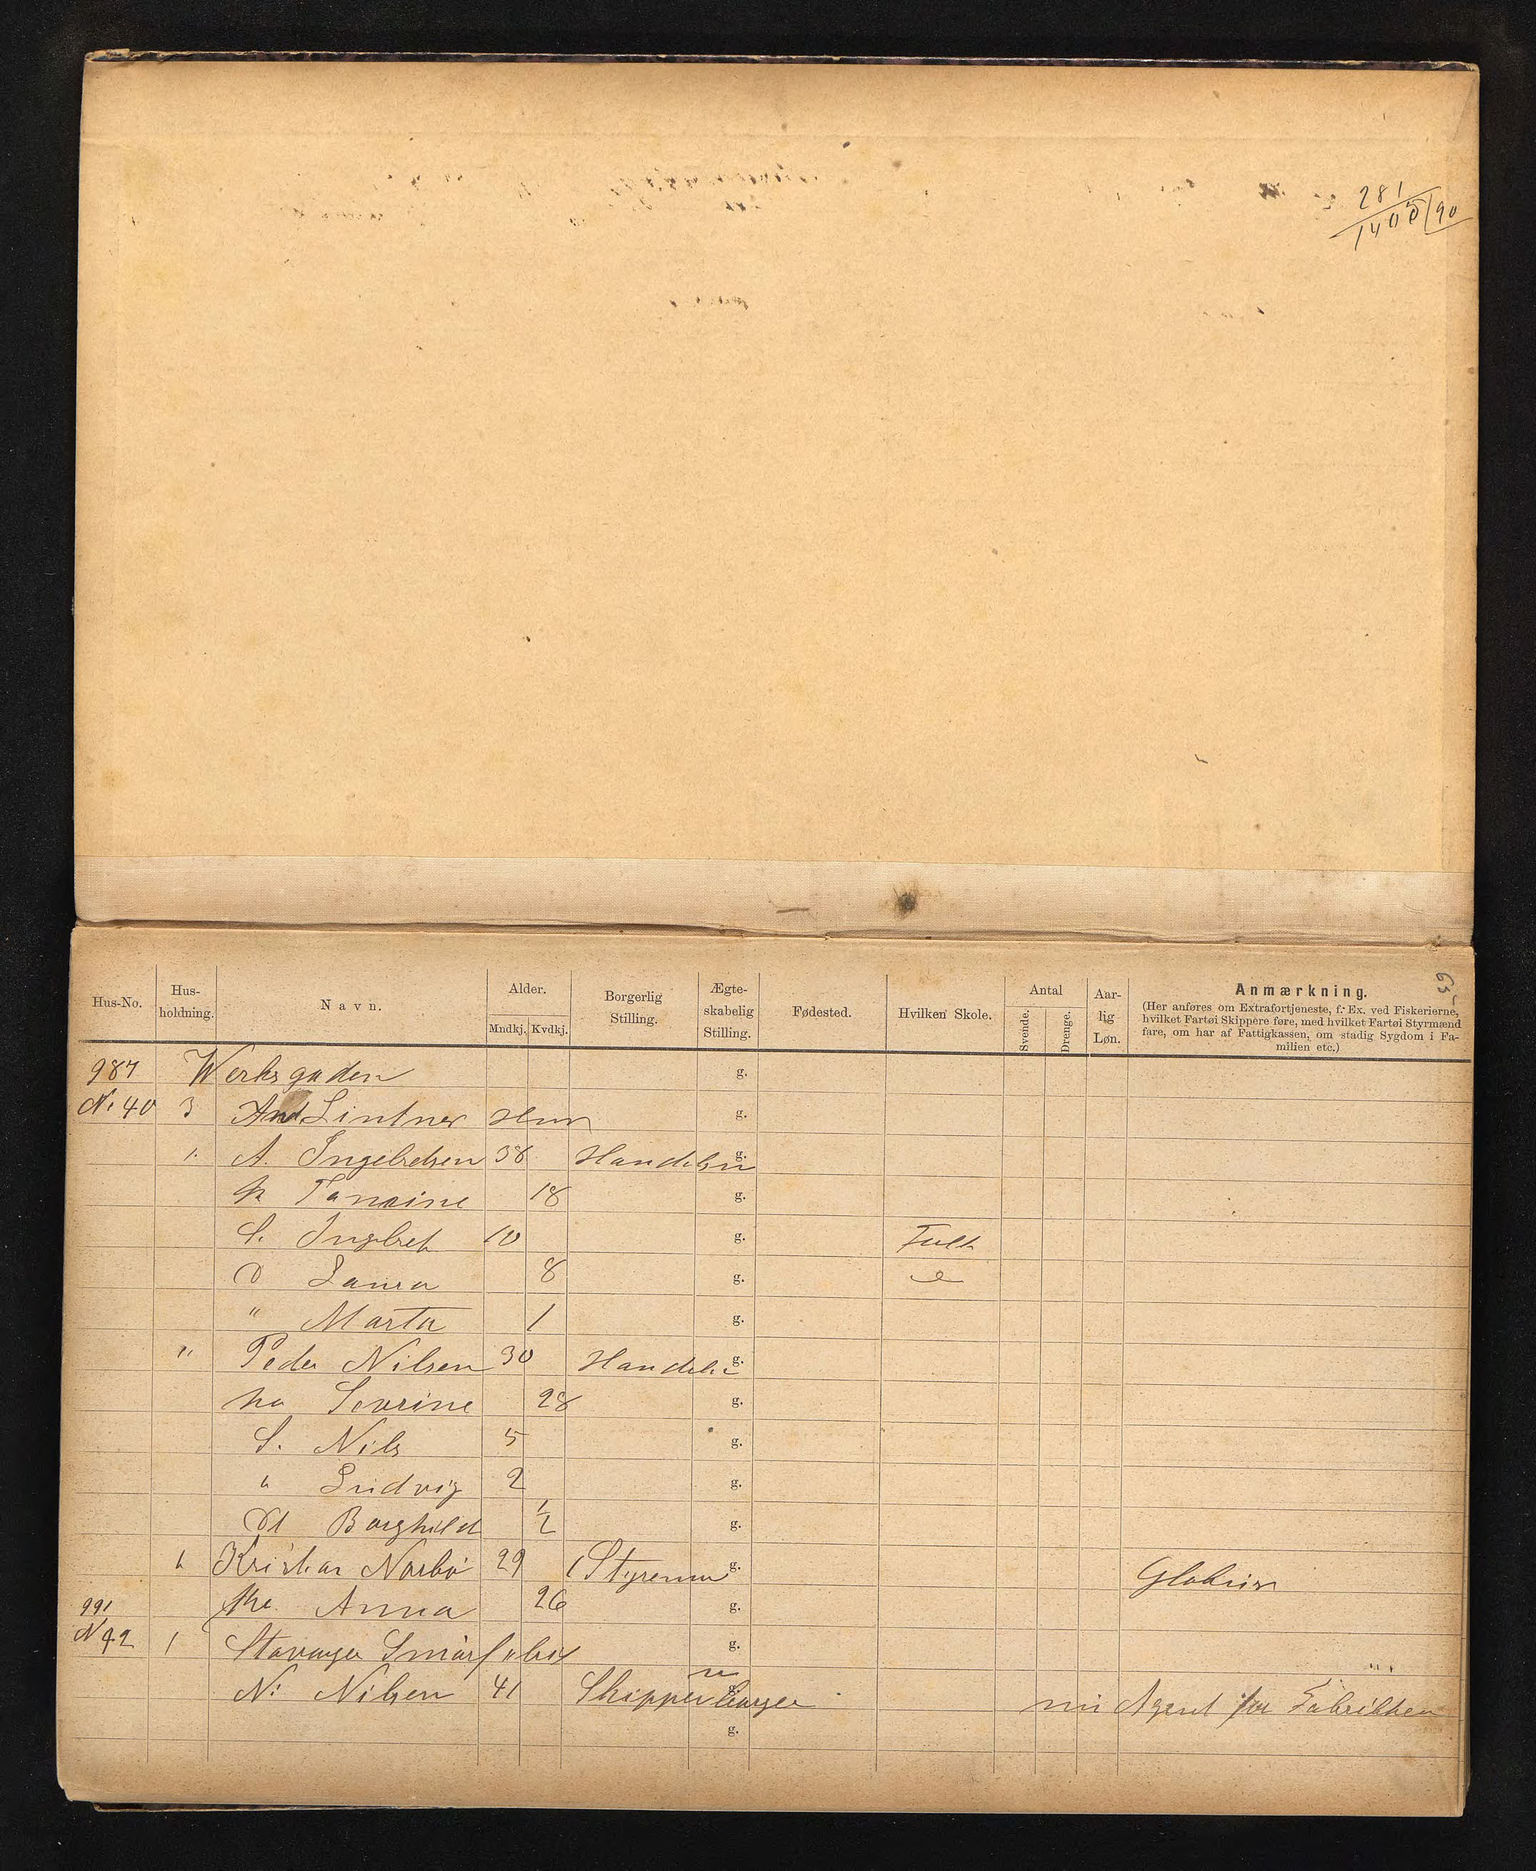 281
1405/90
63
Hus-No. Hus-holdning. Navn. Alder. Mndkj. Kvdkj. Borgerlig Stilling. Ægte-skabelig Stilling. Fødested. Hvilken Skole. Antal Svende. Drenge. Aar-lig Løn. Anmærkning.
(Her anføres om Extrafortjeneste, f. Ex. ved Fiskerierne,
hvilket Fartøi Skippere føre, med hvilket Fartøi Styrmænd
fare, om har af Fattigkassen, om stadig Sygdom i Fa-
milien etc.)
987 Werksgaden g.
No 40 3 And Lintner g.
" A. Ingebretsen 38 Handelsm g.
h 18 g.
S. Ingbret 10 g. Folk
D Laura 8 g.
" Marta 1 g.
" Peder Nilsen 30 Handels g.
ho Sevrine 28 g.
S. Nils 5 g.
" Ludvig 2 g.
D Borghild 1/2 g.
" Kristian Narbø 29 Styrem g.
991 Anna 26 g.
N 42 1 Stavanger Smørfabrik g.
N: Nilsen 41 Skipperborger g. nu Agent for Fabrikken
g.